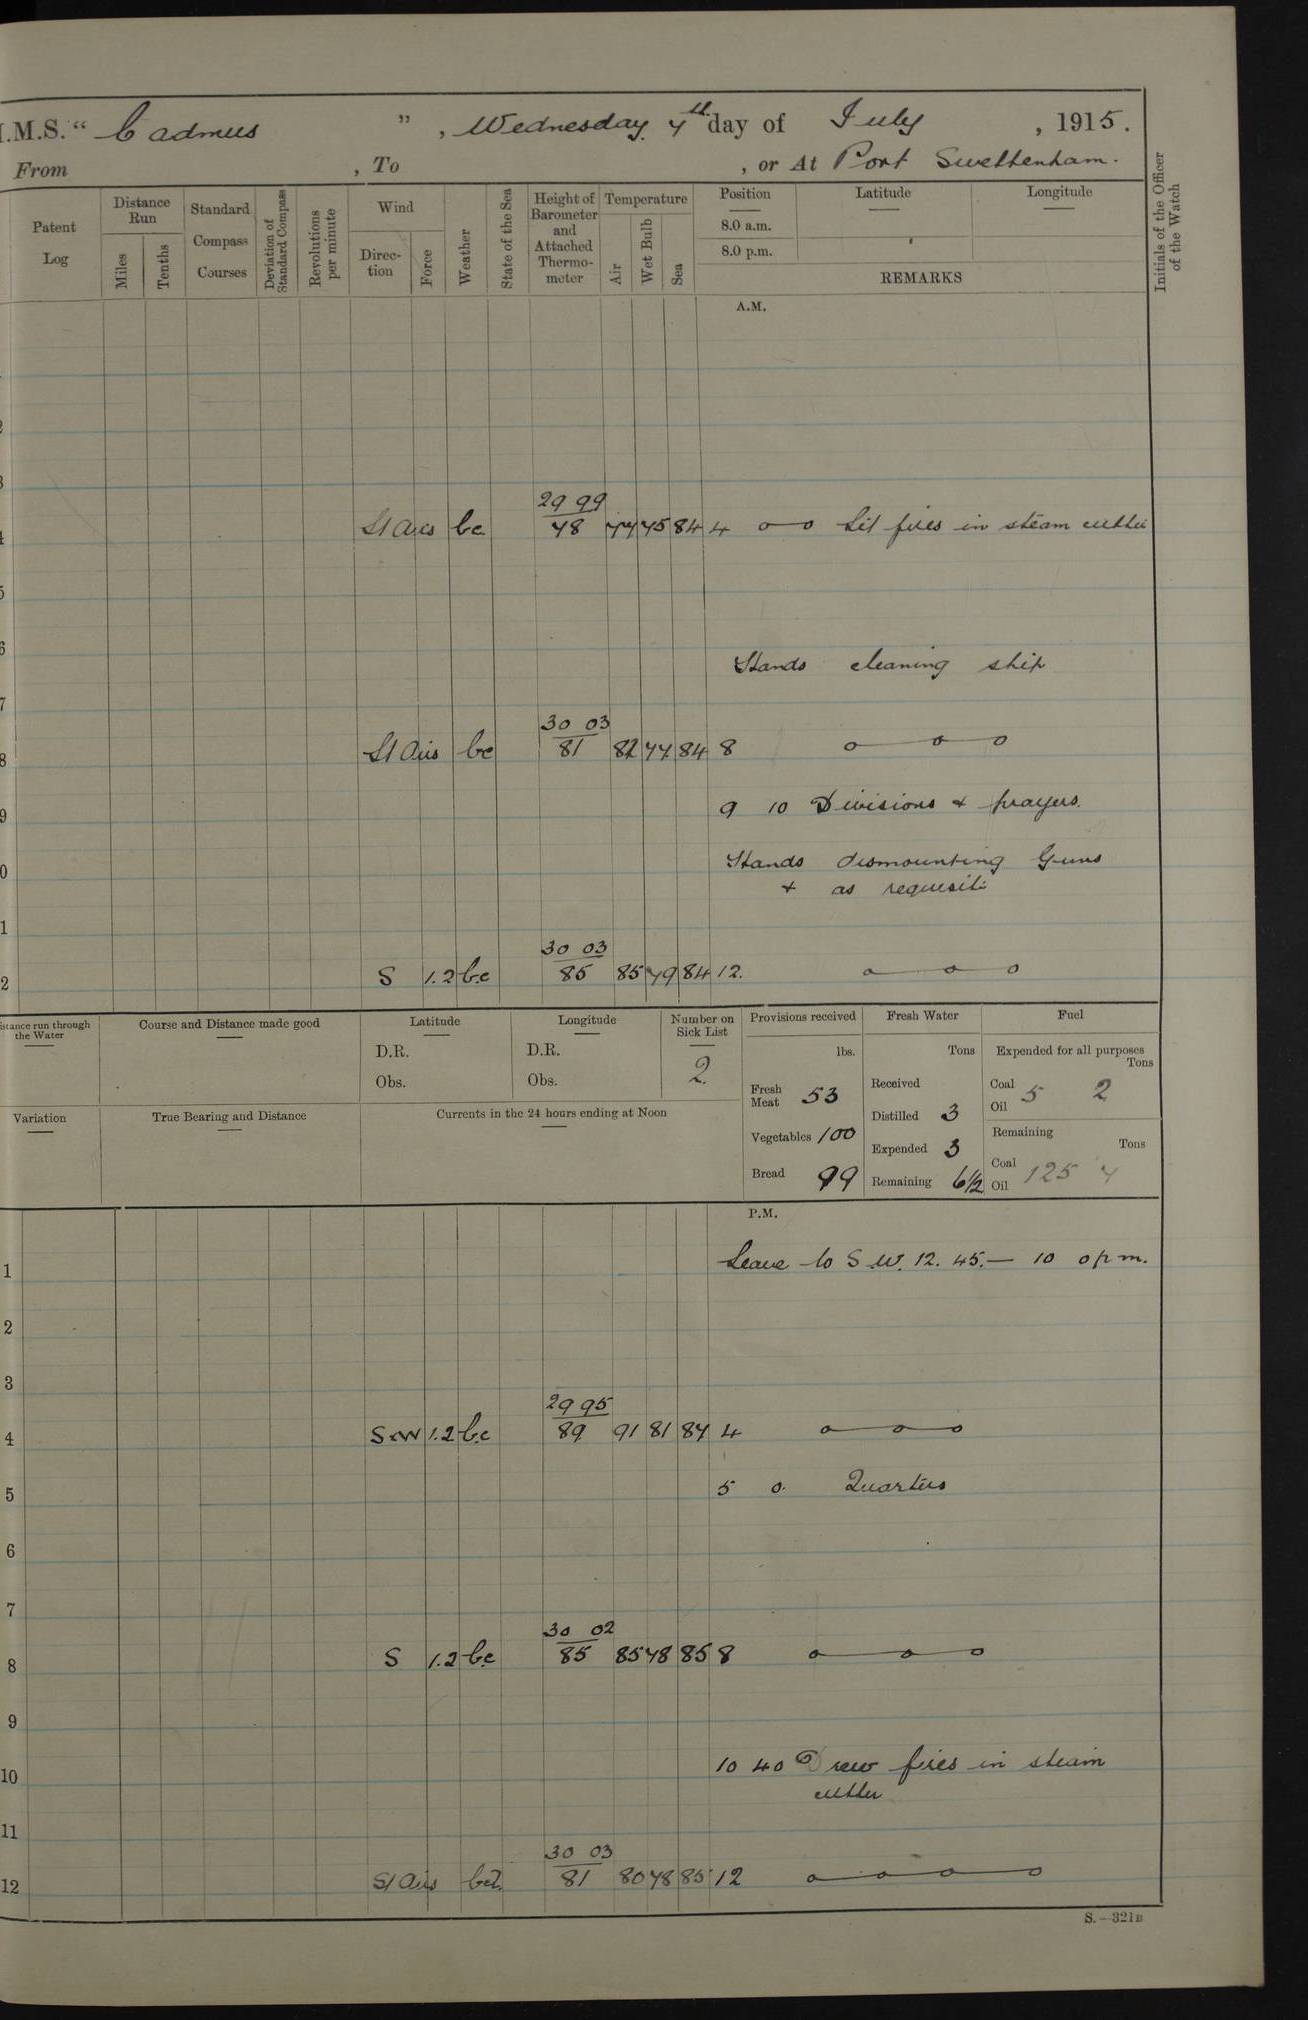 I.M.S. " Cadmus ", Wednesday 7th day of July , 1915.
From , To , or At Port Swettenham.
Patent Log
Distance Run
Miles
Tenths
Standard Compass Courses
Deviation of Standard Compass
Revolutions per minute
Wind
Direction
Force
Weather
State of the Sea
Height of Barometer and Attached Thermometer
Temperature
Air
Wet Bulb
Sea
Position Latitude Longitude
8.0 a.m.
8.0 p.m.
REMARKS
Initials of the Officer of the Watch
A.M.
29 99
St Airs bc 78 77 75 84 4 o—o Lit fires in steam cutter
Hands cleaning ship
30 03
St Airs bc 81 82 77 84 8 o—o—o
9 10 Divisions & prayers.
Hands dismounting Guns
& as requisite
30 03
S 1.2 bc 85 85 79 84 12. o—o—o
Distance run through the Water
Course and Distance made good
Latitude
D.R.
Obs.
Longitude
D.R.
Obs.
Number on Sick List
2.
Provisions received
lbs.
Fresh Meat 53
Vegetables 100
Bread 99
Fresh Water
Tons
Received
Distilled 3
Expended 3
Remaining 6½
Fuel
Expended for all purposes
Tons
Coal
Oil
5 2
Remaining
Tons
Coal
Oil
125 7
Variation
True Bearing and Distance
Currents in the 24 hours ending at Noon
P.M.
1 Leave to S.W. 12. 45.— 10 0 pm.
2
3
29 95
4 SxW 1.2 bc 89 91 81 87 4 o—o—o
5 5 0. Quarters
6
7
30 02
8 S 1.2 bc 85 85 78 85 8 o—o—o
9
10 10 40 Drew fires in steam
cutter
11
30 03
12 St Airs bcl. 81 80 78 85 12 o—o—o—o
S.—321B